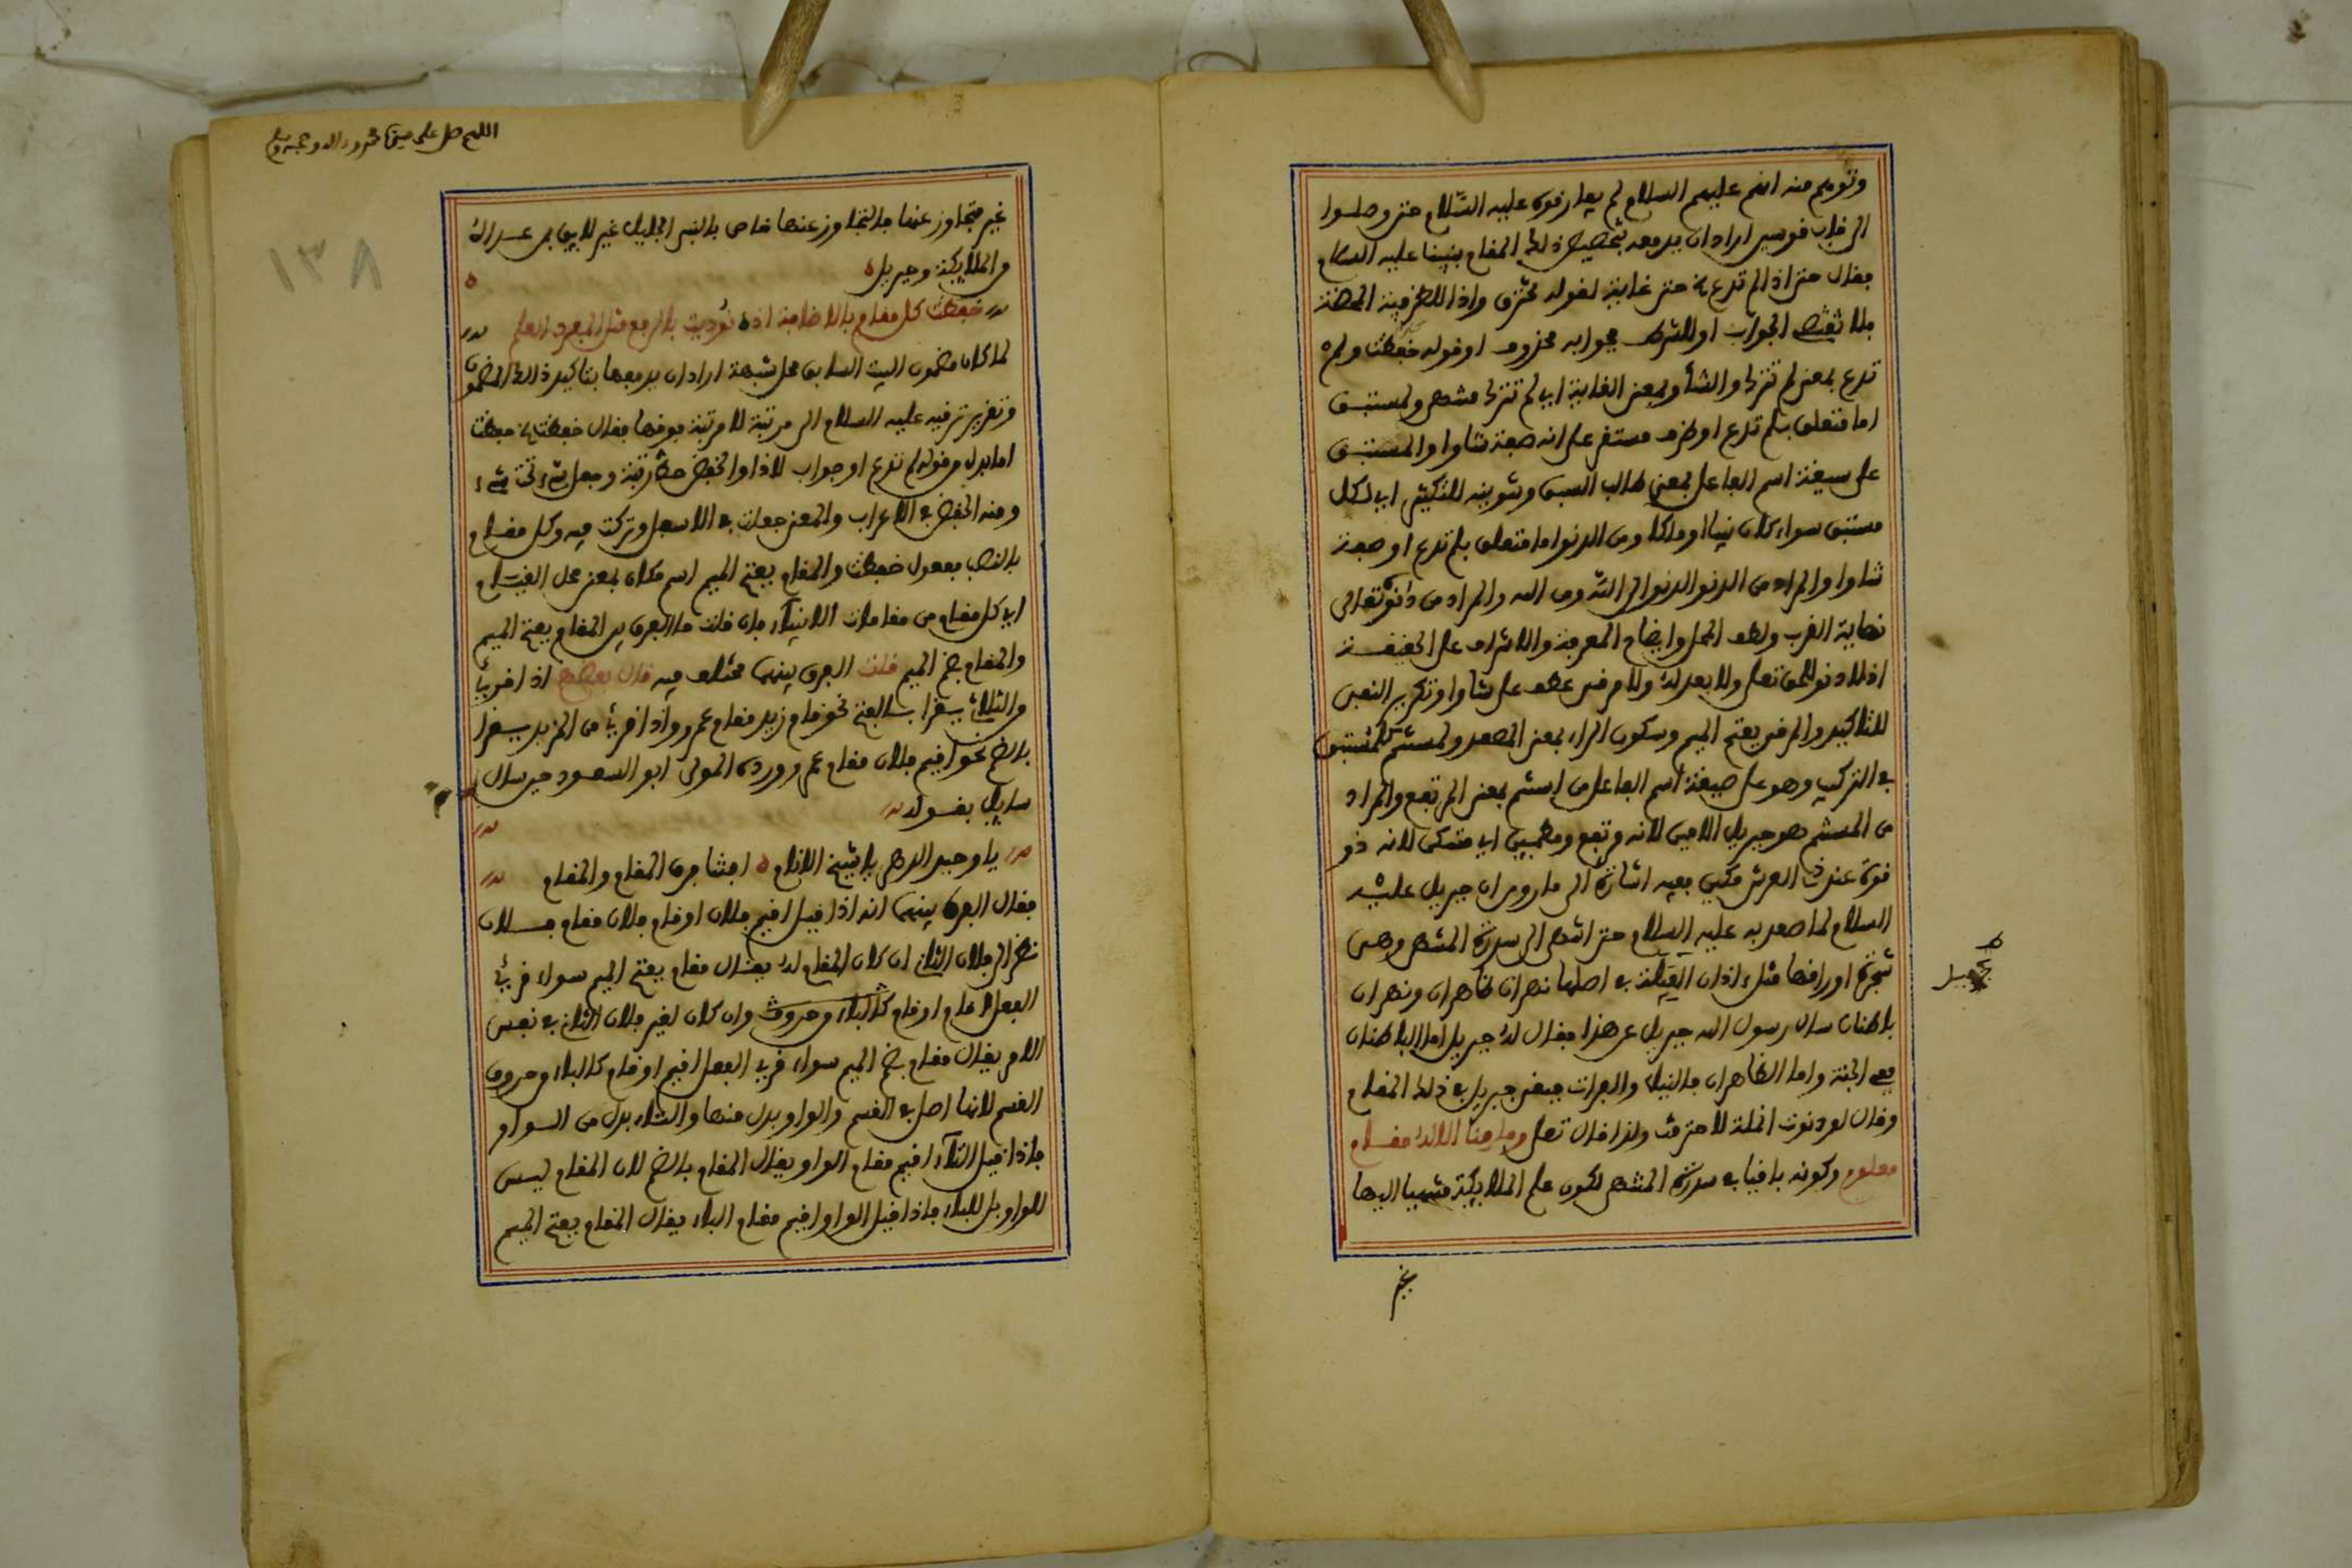 وتوهم منه انهم عليهم السلام لم يفارقوه عليه السّلام حتى وصلوا
الى قاب قوسين اراد ان يدفعه بتخصيص ذلك المقام بنبينا عليه السلام
فقال حتى اذا لم تدع حتى غاية لقوله تخترق واذا للظرفية المحضة
فلا تقتضي الجواب او للشرط فجوابه محذوف او قوله خفضت ولم
تدع بمعنى لم تترك والشأو بمعنى الغاية اي لم تترك منتهى ولمستبق
اما متعلق بلم تدع او ظرف مستقر على انه صفة شاوا والمستبق
على صيغة اسم الفاعل بمعنى طالب السبق وتنوينه للتكثير اي لكل
مستبق سواء كان نبيا او ملكا ومن الدنو اما متعلق بلم تدع او صفة
شاوا والمراد من الدنو الدنو الى الله ومن الله والمراد من دنوه تعالى
نهاية القرب ولطف المحل وايضاح المعرفة والاشراف على الحقيقة
اذ لا دنو للحق تعلى ولا بعد له ولا مرقى عطف على شاوا وتكرير النفى
للتاكيد والمرقى بفتح الميم وسكون الراء بمعنى المصعد ولمستنم كلمستبق
في التركيب وهو على صيغة اسم الفاعل من استنم بمعنى المرتفع والمراد
من المستنم هو جبريل الامين لانه مرتفع ومطمئن اي متمكن لانه ذو
قوة عند ذي العرش مكين ففيه اشارة الى ما روي ان جبريل عليه
السلام لما صعد به عليه السلام حتى انتهى الى سدرة المنتهى وهي
شجرة اوراقها مثل اذان الفيلة في اصلها نهران ظاهران ونهران
باطنان سال رسول الله جبريل عن هذا فقال له جبريل اما الباطنان
ففي الجنة واما الظاهران فالنيل والفرات فبقي جبريل في ذلك المقام
وقال لو دنوت انملة لاحترقت ولذا قال تعلى وما منا الا له مقام
معلوم وكونه باقيا في سدرة المنتهى لكون علم الملايكة منتهيا اليها
غير
اللهم صل على سيدنا محمد وءاله وصحبه وسلم
١٣٨
غير متجاوز عنها فالتجاوز عنها خاص بالنبي الجليل غير لايق بمن عداه
من الملايكة وجبريل
خفضت كل مقام بالاضافة اذ نوديت بالرفع مثل المفرد العلم
لما كان مضمون البيت السابق محل شبهة اراد ان يدفعها بتاكيد ذلك المضمون
وتقرير ترقيه عليه السلام الى مرتبة لا مرتبة فوقها فقال خفضت خفضت
اما بدل من قوله لم تدع او جواب لاذا والخفض حط رتبة وجعل شيء تحت شيء
ومنه الخفض في الاعراب والمعنى جعلت في الاسفل وتركت فيه وكل مقام
بالنصب مفعول خفضت والمقام بفتح الميم اسم مكان بمعنى محل القيام
اي كل مقام من مقامات الانبياء فان قلت ما الفرق بين المقام بفتح الميم
والمقام بضم الميم قلت الفرق بينهما مختلف فيه قال بعضهم اذا قرئ
والثلاثي يقرا بالفتح نحو قام زيد مقام عمرو واذا قرئ من المزيد يقرا
بالضم نحو اقيم فلان مقام عمرو ورده المولى ابو السعود حين سال
سايل بقوله
يا وحيد الدهر يا شيخ الانام افتنا فرق المقام والمقام
فقال الفرق بينهما انه اذا قيل اقيم فلان او قام فلان مقام فلان
نظر الى فلان الثاني ان كان المقام له فيقال مقام بفتح الميم سواء قرئ
الفعل اقام او قام كالباء وحروف وان كان لغير فلان الثاني في نفس
الامر يقال مقام بضم الميم سواء قرئ الفعل اقيم او قام كالباء وحروف
القسم لانها اصل في القسم والواو بدل منها والتاء بدل من الواو
فاذا قيل التاء اقيم مقام الواو يقال المقام بالضم لان المقام ليس
للواو بل للباء فاذا قيل الواو اقيم مقام الباء يقال المقام بفتح الميم